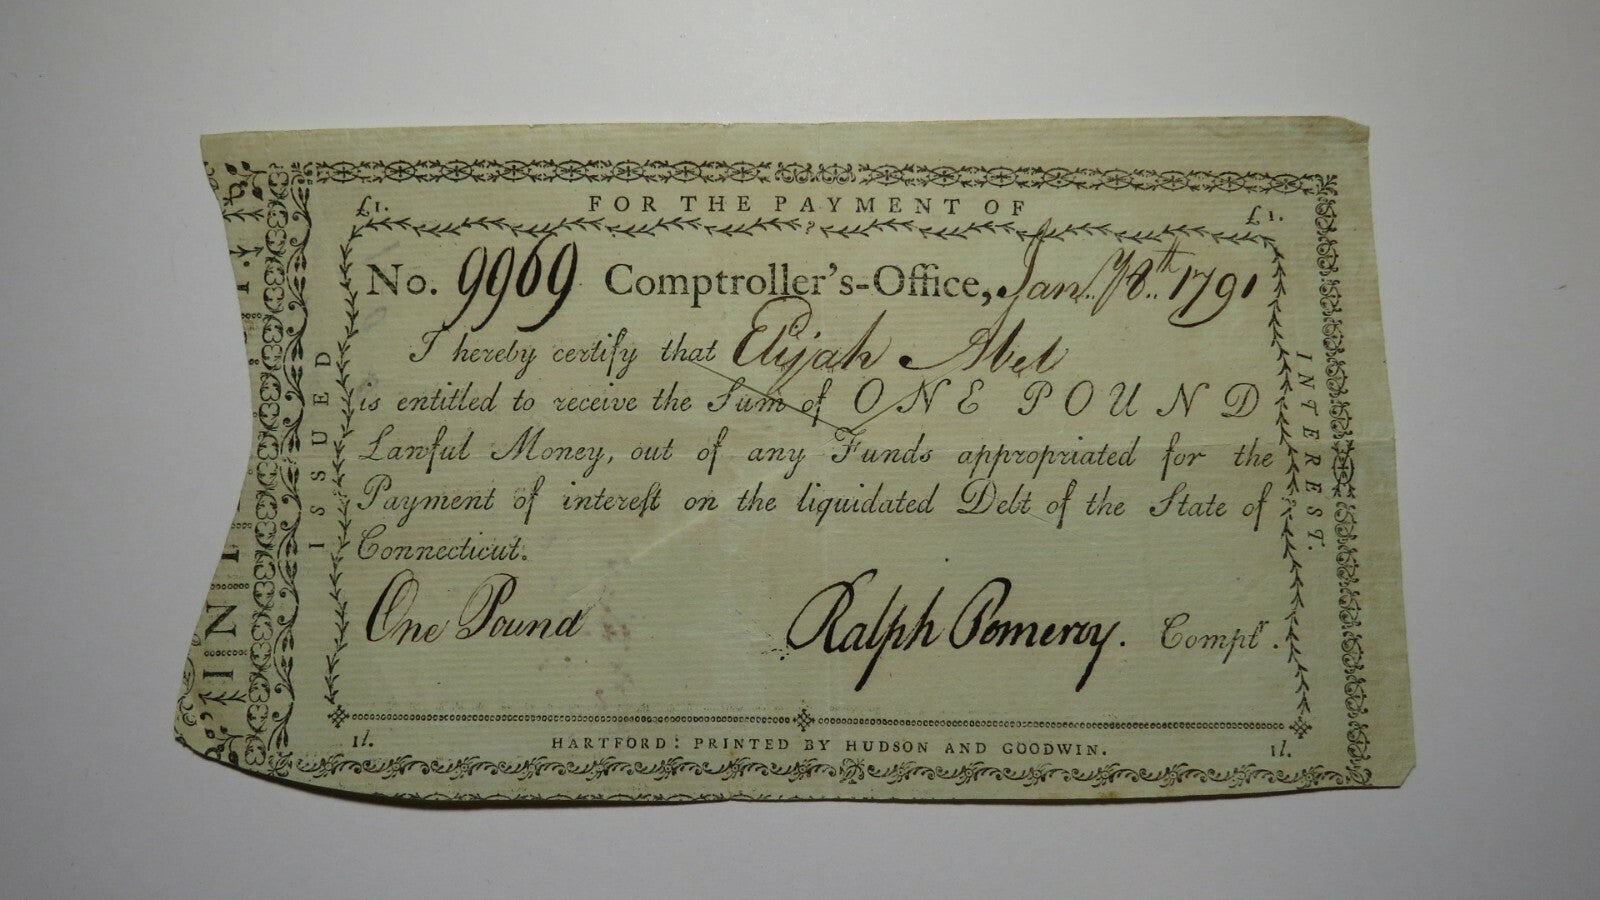 FOR THE PAYMENT OF
£1. £1.
No. 9969 Comptroller's-Office, Jany. 8th. 1791
I hereby certify that Elijah Abel
is entitled to receive the Sum of ONE POUND
Lawful Money, out of any Funds appropriated for the
Payment of intereſt on the liquidated Debt of the State of
Connecticut.
One Pound Ralph Pomeroy. Complr.
1l. HARTFORD: PRINTED BY HUDSON AND GOODWIN. 1l.
ISSUED
INTEREST.